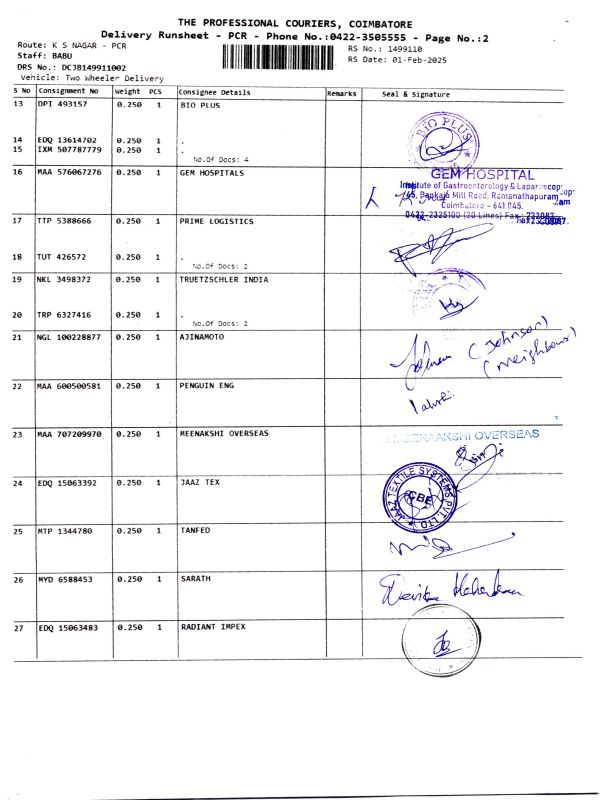 THE PROFESSIONAL COURIERS, COIMBATORE
Delivery Runsheet - PCR - Phone No.:0422-3505555 - Page No.:2
Route: K S NAGAR - PCR
Staff: BABU
DRS No.: DCJB149911002
Vehicle: Two Wheeler Delivery
RS No.: 1499110
RS Date: 01-Feb-2025
S No Consignment No Weight PCS Consignee Details Remarks Seal & Signature
13 DPI 493157 0.250 1 BIO PLUS
BIO PLUS
14 EDQ 13614702 0.250 1 .
15 IXM 507787779 0.250 1 .
No.Of Docs: 4
16 MAA 576067276 0.250 1 GEM HOSPITALS
GEM HOSPITAL
Institute of Gastroenterology & Laparoscopy
45, Pankaja Mill Road, Ramanathapuram,
Coimbatore - 641 045.
0422-2325100 (30 Lines) Fax :
17 TTP 5388666 0.250 1 PRIME LOGISTICS
18 TUT 426572 0.250 1 .
No.Of Docs: 2
19 NKL 3498372 0.250 1 TRUETZSCHLER INDIA
20 TRP 6327416 0.250 1 .
No.Of Docs: 2
21 NGL 100228877 0.250 1 AJINAMOTO
(Johnson)
(Neighbour)
22 MAA 600500581 0.250 1 PENGUIN ENG
23 MAA 707209970 0.250 1 MEENAKSHI OVERSEAS
MEENAAKSHI OVERSEAS
24 EDQ 15063392 0.250 1 JAAZ TEX
JAAZ TEXTILE SYSTEMS PVT. LTD
CBE
25 MTP 1344780 0.250 1 TANFED
26 MYD 6588453 0.250 1 SARATH
27 EDQ 15063483 0.250 1 RADIANT IMPEX